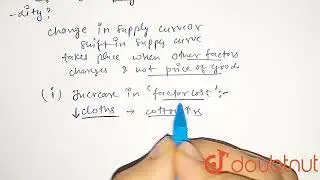 -dity?
change in supply curve or
shift in supply curve
takes place when other factors
changes & not price of good
(i) Increase in 'factor cost' :-
↓ cloths → cotton ↑ rs
doubtnut